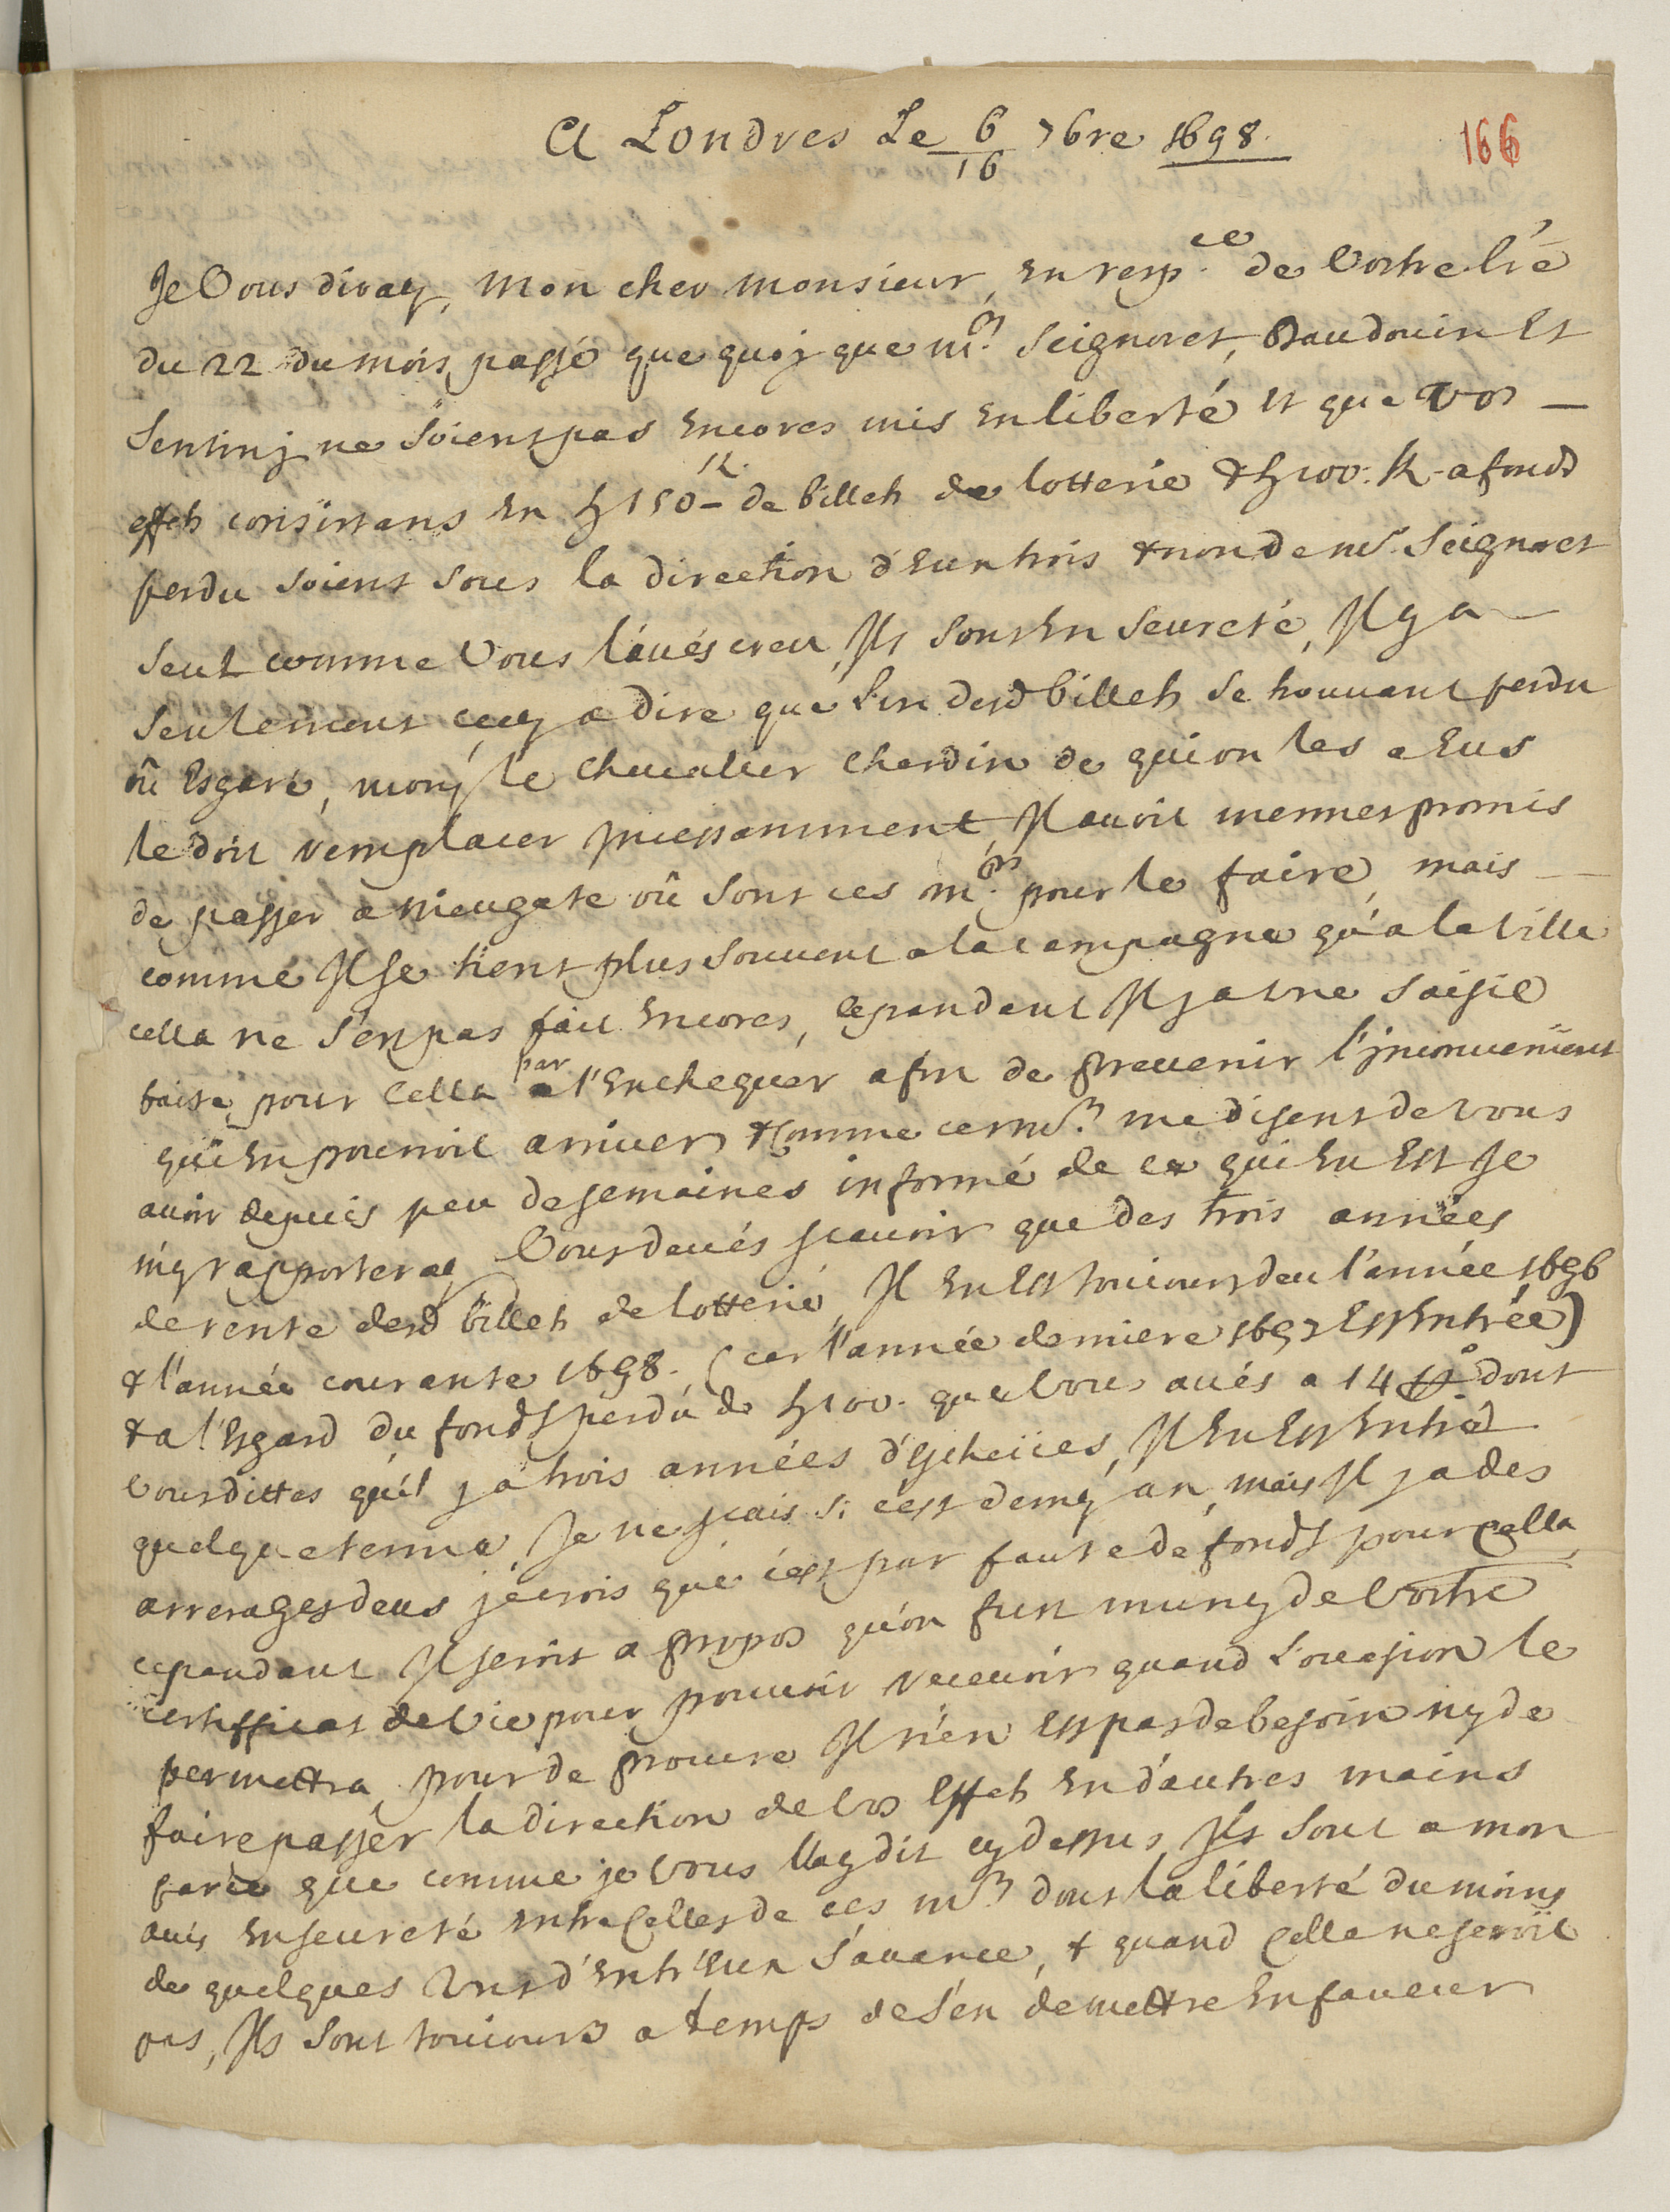 A Londres Le 6/16 7bre 1698.
166
Je Vous diray, Mon cher Monsieur, en resp.ce de Vostre lre
du 22 du mois passé que quoy que Mrs. Seignoret, Baudouin Et
Sentiny ne soient pas Encores mis en liberté et que vos
effets consistans en 150 - St. de billets de lotterie & 100. St. a fonds
perdu soient sous la direction d'Eux trois & non de Mr. Seignoret
seul comme Vous l'avés creu, Ils sont En seureté, Il y a
seulement cecy a dire que l'un desd billets se trouvant perdu
où Esgaré, monsr le Chevalier Chardin de qui on les a Eus
le doit remplacer Incessamment Il avoit mesmes promis
de passer a Nieugate où sont ces Mrs. pour le faire, mais
comme Il se tient plus souvent a la campagne qu'a la Ville
cella ne s'est pas fait Encores, cependant Il y a Une saisie
faite pour Cella par l'Enchequer afin de prevenir l'Inconvenient
qui En pourroit arriver & Comme ces Mrs. me disent de Vous
avoir depuis peu de semaines informé de ce qui En Est Je
m'y rapporteray Vous devés sçavoir que des trois années
de rente desd billets de lotterie, Il En Est tousiours deu l'année 1696
& l'année courante 1698. (car l'année derniere 1697 Est Entrée)
& a l'Esgard du fonds perdu de 100. que Vous avés a 14 dont
Vous dittes qu'il y a trois années d'Escheües, Il En Est Entré
quelque terme, Je ne sçais si c'est demy an, mais Il y a des
arrerages deus je crois que c'est par faute de fonds pour Cella,
cependant Il seroit a propos qu'on fust muny de Vostre
certifficat de Vie pour pouvoir recevoir quand l'occasion le
permettra, pour de procure Il n'en Est pas de besoin ny de
faire passer la direction de Vos Effets En d'autres mains
parce que comme je Vous l'ay dit cy dessus, Ils sont a mon
avis En seureté entre Celles de ces Mrs. dont la liberté du moins
de quelques Uns d'Entr'Eux s'avance, & quand Cella ne seroit
pas, Ils sont tousiours a temps de s'en demettre En faveur